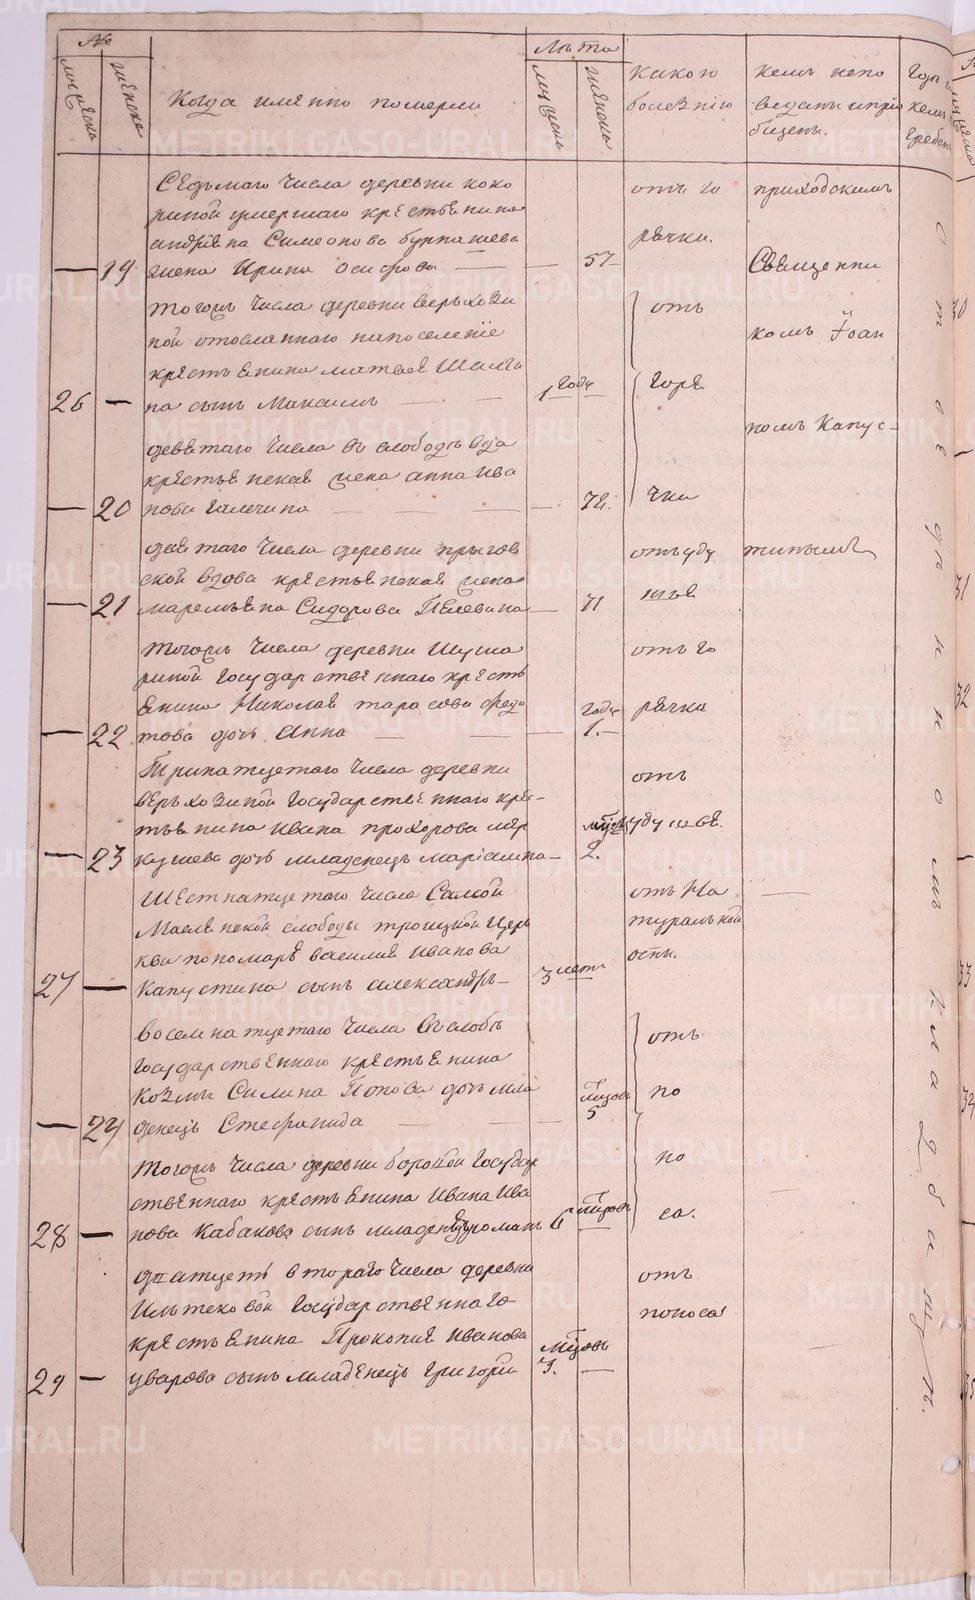 №
Лѣта
мужеска
женска
Когда именно померли
мужска
женска
какою
болезнію
кемъ испо
веданы и прiо
бщены.
кемъ
Седьмаго числа деревни коко
риной умершаго крестьянина
андреяна Симеонова бурнашева
жена Ирина Осипова
19
57
отъ го
рячки.
приходскимъ
Священни
комъ Iоан
номъ Капус-
тинымъ
тогожъ числа деревни верьхози
ной отосланнаго напоселенiе
крестьянина матвея
на сынъ Максимъ
26
1 годъ
отъ
горя
чки
девятаго числа въ слободѣ вдова
крестьянская жена анна Ива
нова Галечина
20
72.
девятаго числа деревни
ской вдова крестьянская жена
маремьяна Сидорова Пелевина
21
71
отъ уду
шья
тогожъ числа деревни Шума
риной Государственнаго кресть
янина Николая тарасова
това дочь Анна
22
годъ
1.
отъ го
рячки
Тринатцетаго числа деревни
верьхозиной Государственнаго крес-
тьянина Ивана прохорова мер
кушева дочь младенецъ марiамна
23
мцовъ
2.
отъ
удушья.
Шестнатцетаго числа Самой
Маслянской слободы троицкой церь
кви пономаря василия Иванова
Капустина сынъ александръ
27
3 летъ
отъ На
туральной
оспы.
восемнатцетаго числа въ слобѣ
Государственнаго крестьянина
Козмы Силина Попова дочь мла
денецъ Стефанида
24
мцовъ
5
отъ
по
но
са.
тогожъ числа деревни боровой Государ
ственнаго крестьянина Ивана Ива
нова Кабакова сынъ младенецъ романъ
28
6 мцовъ
дватцеть втораго числа деревни
Ильтековой Государственнаго
крестьянина Прокопия Иванова
уварова сынъ младенецъ Григорiй
29
мцовъ
3.
отъ
поноса